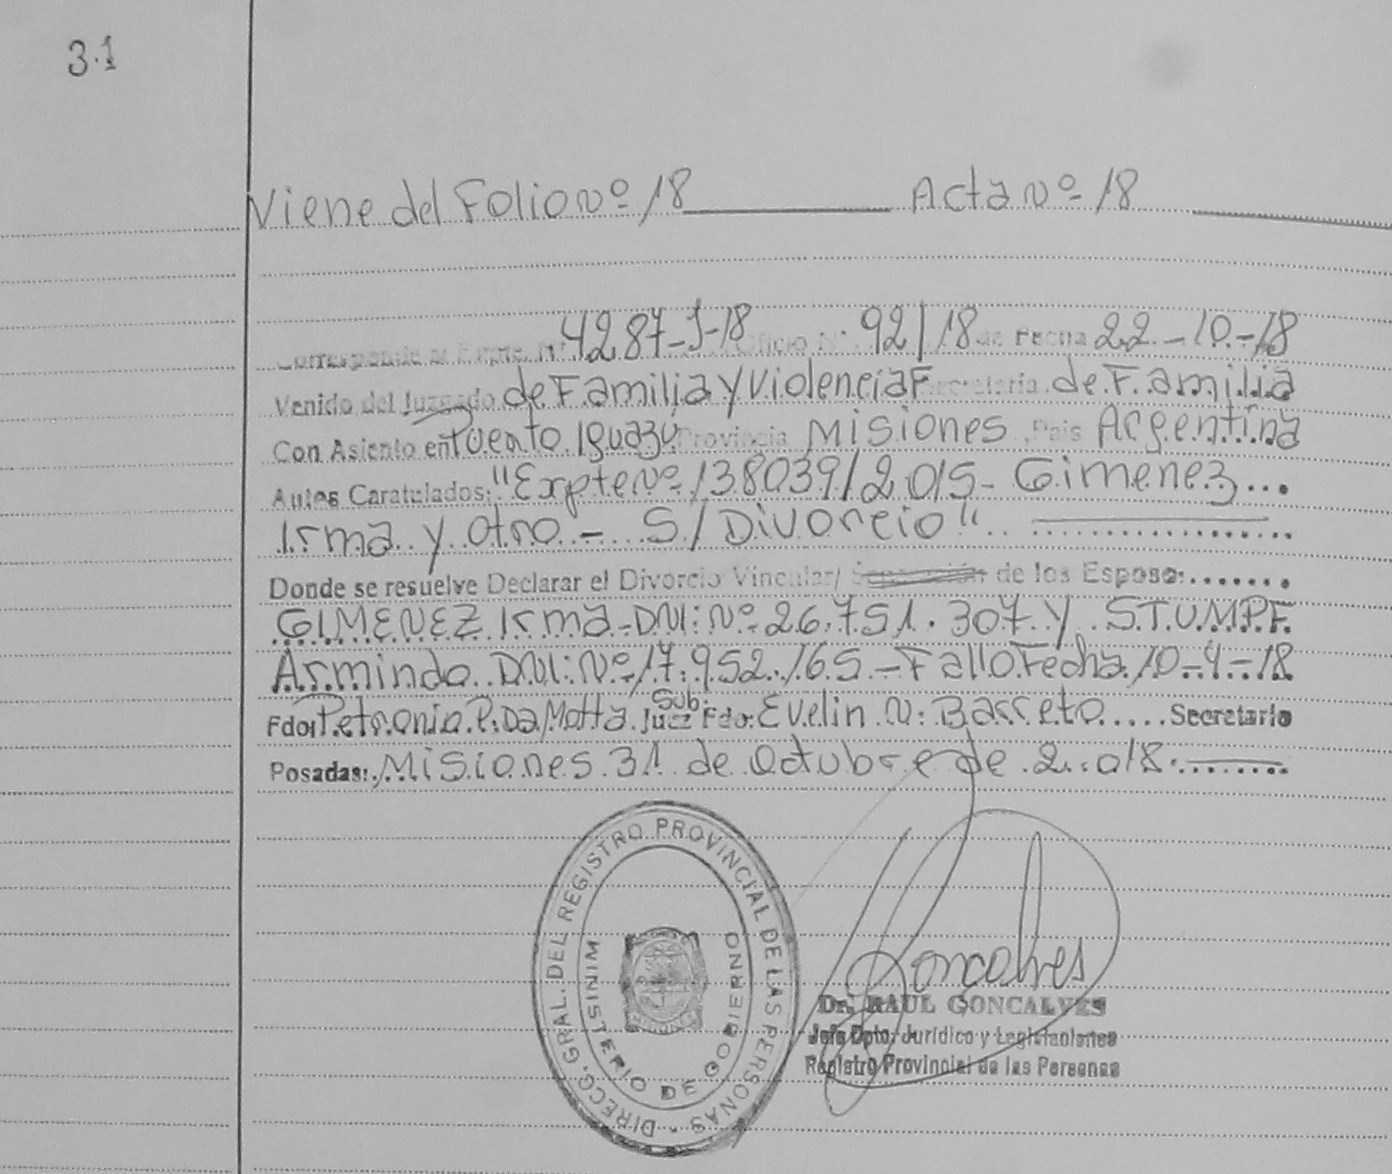 3.1
Viene del Folio Nº 18 Acta Nº 18
Corresponde al Expte. Nº 4287-J-18 Oficio Nº 92/18 de Fecha 22-10-18
Venido del Juzgado de Familia y Violencia F Secretaría de Familia
Con Asiento en Puerto Iguazú Provincia Misiones Pais Argentina
Autos Caratulados: "Expte Nº 138039/2015- Gimenez...
Irma y otro - S/Divorcio"
Donde se resuelve Declarar el Divorcio Vincular/ Separación de los Esposo:.......
GIMENEZ Irma-DNI: Nº 26.751.307 y STUMPF
Armindo DNI: Nº 17.952.165-Fallo Fecha 10-4-18
Fdo: Petronio P. Da Motta Sub. Juez Fdo: Evelin N. Barreto.... Secretario
Posadas: Misiones 31 de Octubre de 2.018
DIRECC. GRAL. DEL REGISTRO PROVINCIAL DE LAS PERSONAS
MINISTERIO DE GOBIERNO
MISIONES
Goncalves
Dr. RAUL GONCALVES
Jefe Dpto. Jurídico y Legislaciones
Registro Provincial de las Personas